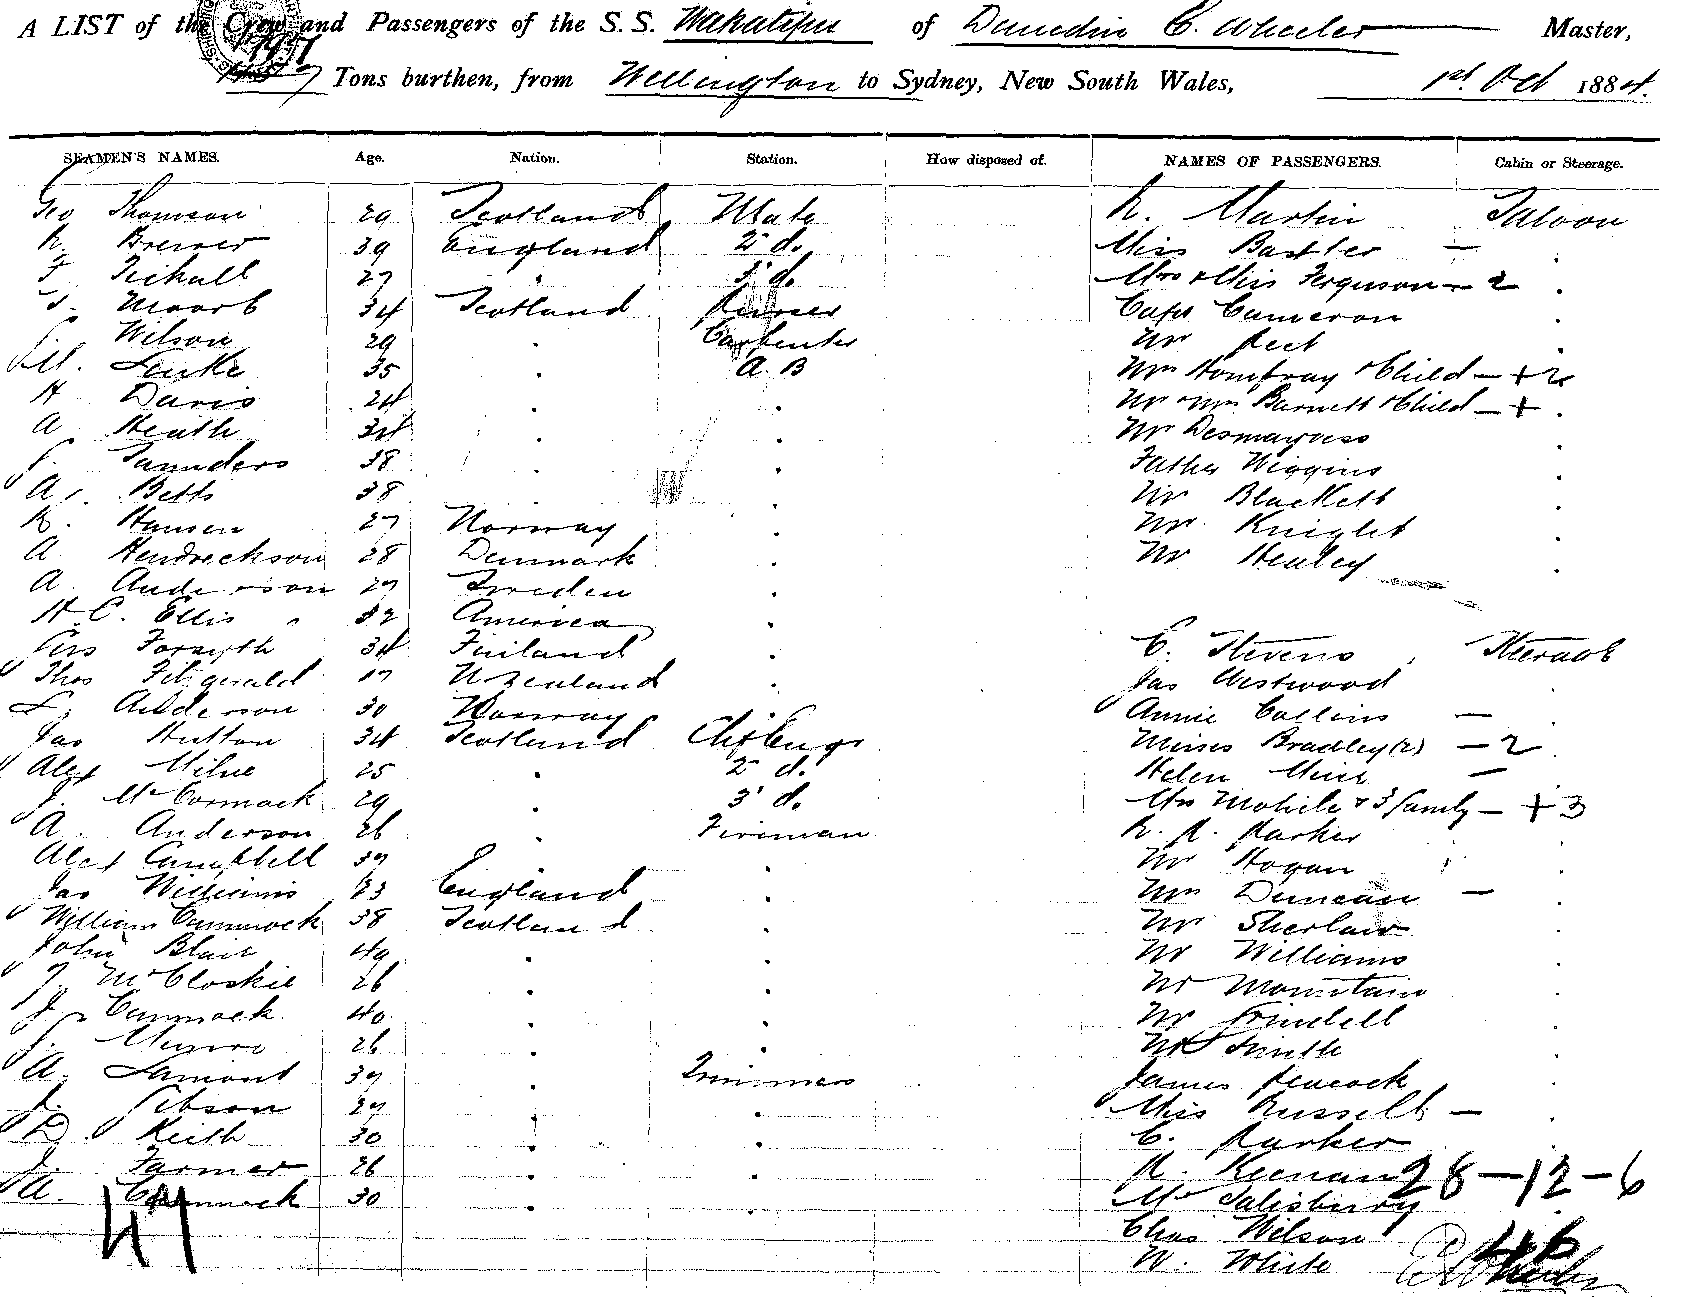 A LIST of the Crew and Passengers of the S.S. Wakatipu of Dunedin C. Wheeler Master,
Tons burthen, from Wellington to Sydney, New South Wales, 1st Oct 1884.
SEAMEN'S NAMES. Age. Nation. Station. How disposed of. NAMES OF PASSENGERS. Cabin or Steerage.
Geo Thomson 29 Scotland Mate R. Martin Saloon
39 England 2 d. Miss Baxter —
27 " 3 d. Mrs & Miss Ferguson — 2
34 Scotland Purser Capt Cameron
Wilson 29 Carpenter Mr
35 A B Mrs Homfray & Child — + 2
H Davis 24 Mr & Mrs Barnett & Child — +
A Heath 34 Mr
J. Saunders 38 Father Wiggins
A. Betts 38 Mr Blackett
Hansen 27 Norway Mr Knight
A Hendreckson 28 Denmark Mr Henley
A. Anderson 27 Sweden
H. C. Ellis 32 America
Forsyth 34 Finland C. Stevens Steerage
Thos Fitzgerald 17 N. Zealand Jas Westwood
Anderson 30 Norway Annie Collins —
Jas Hutton 34 Scotland Chf Engr Misses Bradley (2) — 2
Alex Milne 25 2 d. Helen —
J. McCormack 29 3 d. Mrs & 3 family — + 3
A. Anderson 26 Fireman R. R. Parker
Alex Campbell 39 Mr Hogan
Jas Williams 23 England Mrs Duncan —
William Cammock 38 Scotland Mr
John Blair 49 Mr Williams
McCloskie 26 Mr Mountain
J. Cammock 40 Mr
J. Munro 26 Mr Smith
A. Lamont 39 Trimmers James Peacock
J. Gibson 29 Miss Russell —
D. Keith 30 C. Parker
J. Farmer 26 Keenan 28-12-6
A. Cammock 30 Mr Salisbury
41 Chas Wilson
W. White 46